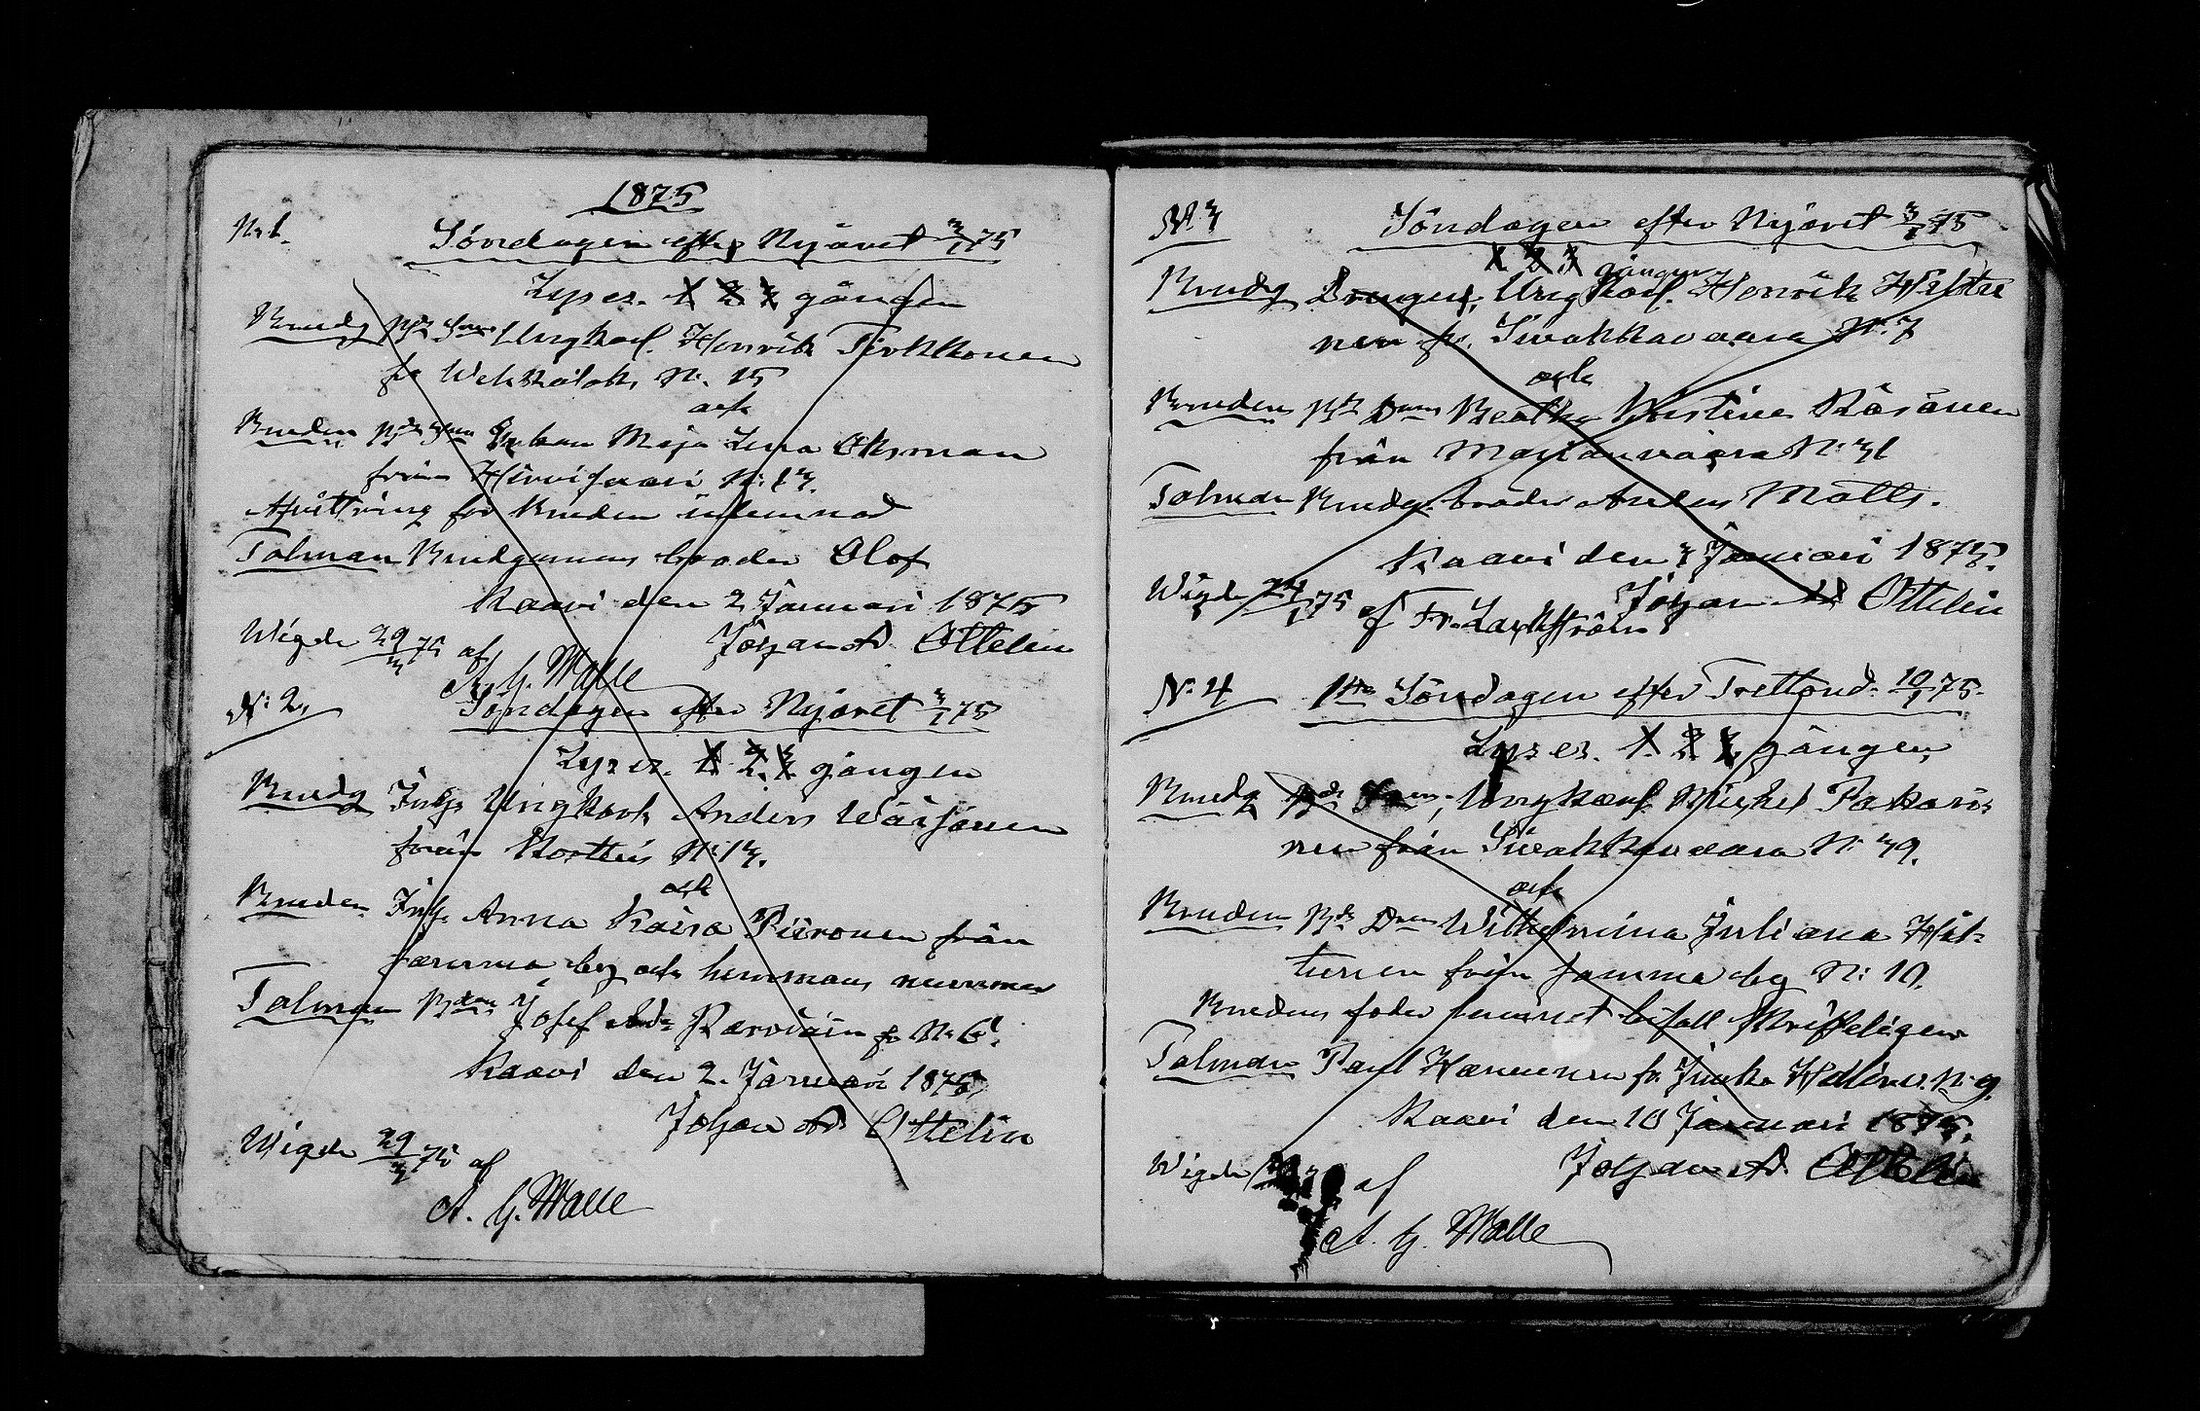 1875
N: 1. Söndagen efter Nyåret 3/1 75
Lyses. 1 2 3 gången
Brudg Bde Son Ungkarl. Henrik Tirkkonen
fr Wehkalaks N: 15
och
Bruden Bde Maja Lena Oksman
från Hirvisaari N: 13.
Afvittring för Bruden inlemnad
Talman Brudgumens broder Olof
Kaavi den 2 Januari 1875
Johan Ad Ottelin
Wigde 29/3 75 af
A. G. Walle
N: 2. Söndagen efter Nyåret 3/1 75
Lyses. 1. 2. 3 gången
Brudg Inhs Ungkarl Anders Wäisänen
från Kortteis N: 13.
och
Bruden Inhs Anna Kaisa Piironen från
samma by och hemmans nummer
Talman Bdon Josef Parviain fr N: 6.
Kaavi den 2. Januari 1875
Johan Ad Ottelin
Wigde 29/3 75 af
A. G. Walle
N: 3 Söndagen efter Nyåret 3/1 75
1 2 3 gången
Brudg Drengen, Ungkarl. Henrik Hiltu
nen fr. Siwakkavaara N: 7
och
Bruden Bde Dron Kristina Räsänen
från Marianvaara N: 31
Talman Brudg. broder Anders Matts.
Kaavi den 3 Januari 1875.
Johan Ad Ottelin
Wigde 75 af Fr.
N: 4 1sta Söndagen efter Trettond. 10/1 75.
Lyses. 1. 2 3, gången
Brudg Bde Son, Ungkarl Michel Pakari-
nen från Siwakkavaara N: 39.
och
Bruden Bde Dron Wilhelmina Juliana Hil-
tunen från samma by N: 10.
Brudens fader lemnat bifall skriftligen
Talman Paul Hänninen fr N: 9.
Kaavi den 10 Januari 1875.
Johan Ad Ottelin
Wigde af
A. G. Walle